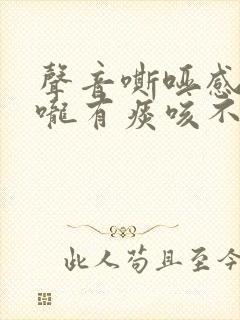 聲音嘶啞感
嚨有痰咳不
此人苟且至今